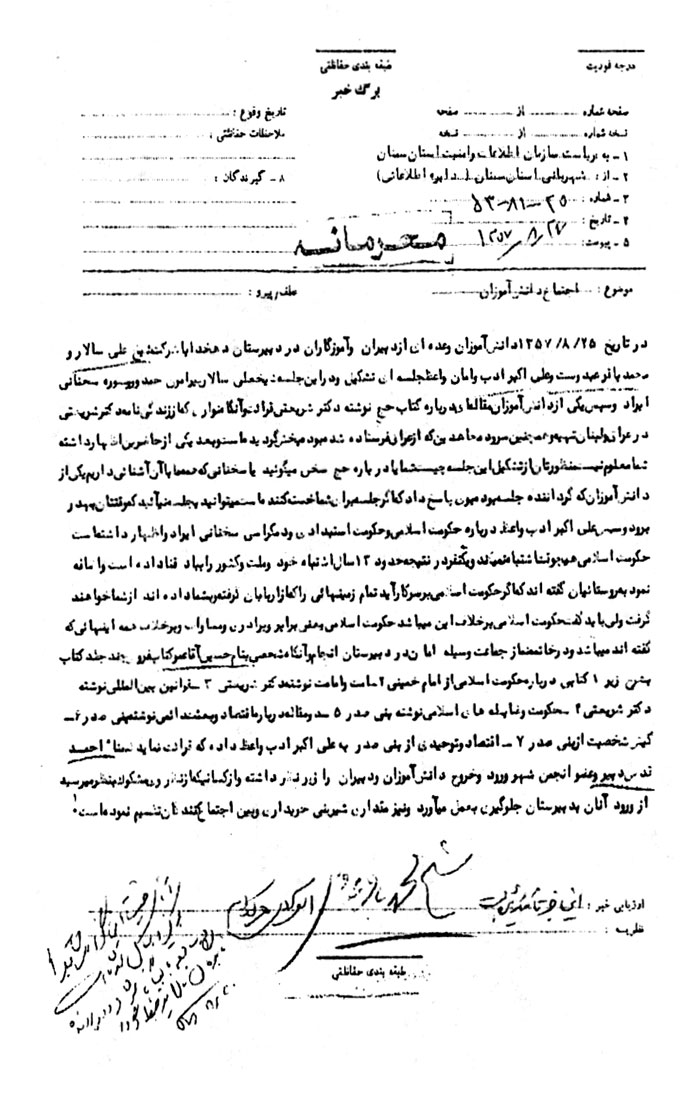 درجه فوریت
طبقه بندی حفاظتی
برگ خبر
صفحه شماره .... از .... صفحه
نسخه شماره .... از .... نسخه
۱ - به ریاست سازمان اطلاعات وامنیت استان سمنان
۲ - از : شهربانی استان سمنان (دایره اطلاعاتی)
۳ - شماره : ۲۵-۸۱-۵۳
۴ - تاریخ : ۱۳۵۷/۸/۲۷
۵ - پیوست :
تاریخ وقوع :
ملاحظات حفاظتی :
۸ - گیرندگان :
محرمانه
موضوع : اجتماع دانش آموزان
عطف/پیرو :
در تاریخ ۱۳۵۷/۸/۲۵ دانش آموزان وعده ای ازدبیران وآموزگاران در دبیرستان دهخدا با شرکت شیخ علی سالار و
محمد باقر عبدوست وعلی اکبر ادب وامان واعظ جلسه ای تشکیل ودر این جلسه شیخعلی سالار پیرامون حمد وسوره سخنانی
ایراد وسپس یکی ازدانش آموزان مقاله ای درباره کتاب حج نوشته دکتر شریعتی قرائت وآنگاه نواری که از زندگی نامه دکتر شریعتی
در عراق ولبنان تهیه وهمچنین سرود مجاهدین که ازعراق فرستاده شده بود پخش گردیده است وبعد یکی ازحاضرین اظهار داشته
شما معلوم نیست منظورتان ازتشکیل این جلسه چیست شما یا درباره حج سخن میگوئید یا سخنانی که همه ما با آن آشنائی داریم یکی از
دانش آموزان که گرداننده جلسه بود پاسخ داد که اگر جلسه برای شما خسته کننده است میتوانید بجلسه نیائید که وقتتان بهدر
برود وسپس علی اکبر ادب واعظ درباره حکومت اسلامی وحکومت استبدادی ودمکراسی سخنانی ایراد واظهار داشته است
حکومت اسلامی هیچوقت اشتباه نمیکند ویکنفر در نتیجه حدود ۱۳ سال اشتباه خود وملت وکشور را بباد فنا داده است واضافه
نمود به روستائیان گفته اند که اگر حکومت اسلامی برسرکار آید تمام زمینهائی را که از اربابان گرفته وبشما داده اند ازشما خواهند
گرفت ولی باید گفت حکومت اسلامی برخلاف این میباشد حکومت اسلامی یعنی برابری وبرادری ومساوات وبرخلاف همه اینهائی که
گفته اند میباشد ودر خاتمه نماز جماعت وسیله امان در دبیرستان انجام وآنگاه شخصی بنام حسین آقا عموکتابفروش چند جلد کتاب
بشرح زیر ۱ کتابی درباره حکومت اسلامی از امام خمینی ۲ - امت وامامت نوشته دکتر شریعتی ۳ - قوانین بین المللی نوشته
دکتر شریعتی ۴ - حکومت وضابطه های اسلامی نوشته بنی صدر ۵ - صد مقاله درباره اقتصاد وبهشت دائمی نوشته بنی صدر ۶ -
کیش شخصیت ازبنی صدر ۷ - اقتصاد توحیدی از بنی صدر به علی اکبر ادب واعظ داده که قرائت نماید ضمنا احمد
قدس دبیر وعضو انجمن شهر ورود وخروج دانش آموزان ودبیران را زیر نظر داشته واز کسانیکه ازنظر وی مشکوک بنظر میرسید
از ورود آنان به دبیرستان جلوگیری بعمل میآورد ونیز مقداری شیرینی خریداری وبین اجتماع کنندگان تقسیم نموده است .
ارزیابی خبر : این خبر تأیید شده است
نظریه :
شیخ محمد باقر
طبقه بندی حفاظتی